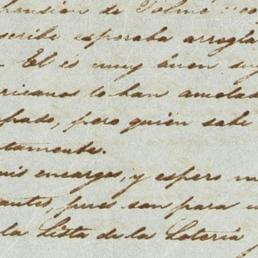 mansión de
scribe esperaba arregla
. El es muy buen su
ricanos lo han amola
pado, pero quien sabe
tamente.
mis encargos, y espero m
antes, pues son para u
la lista de la Loteria y